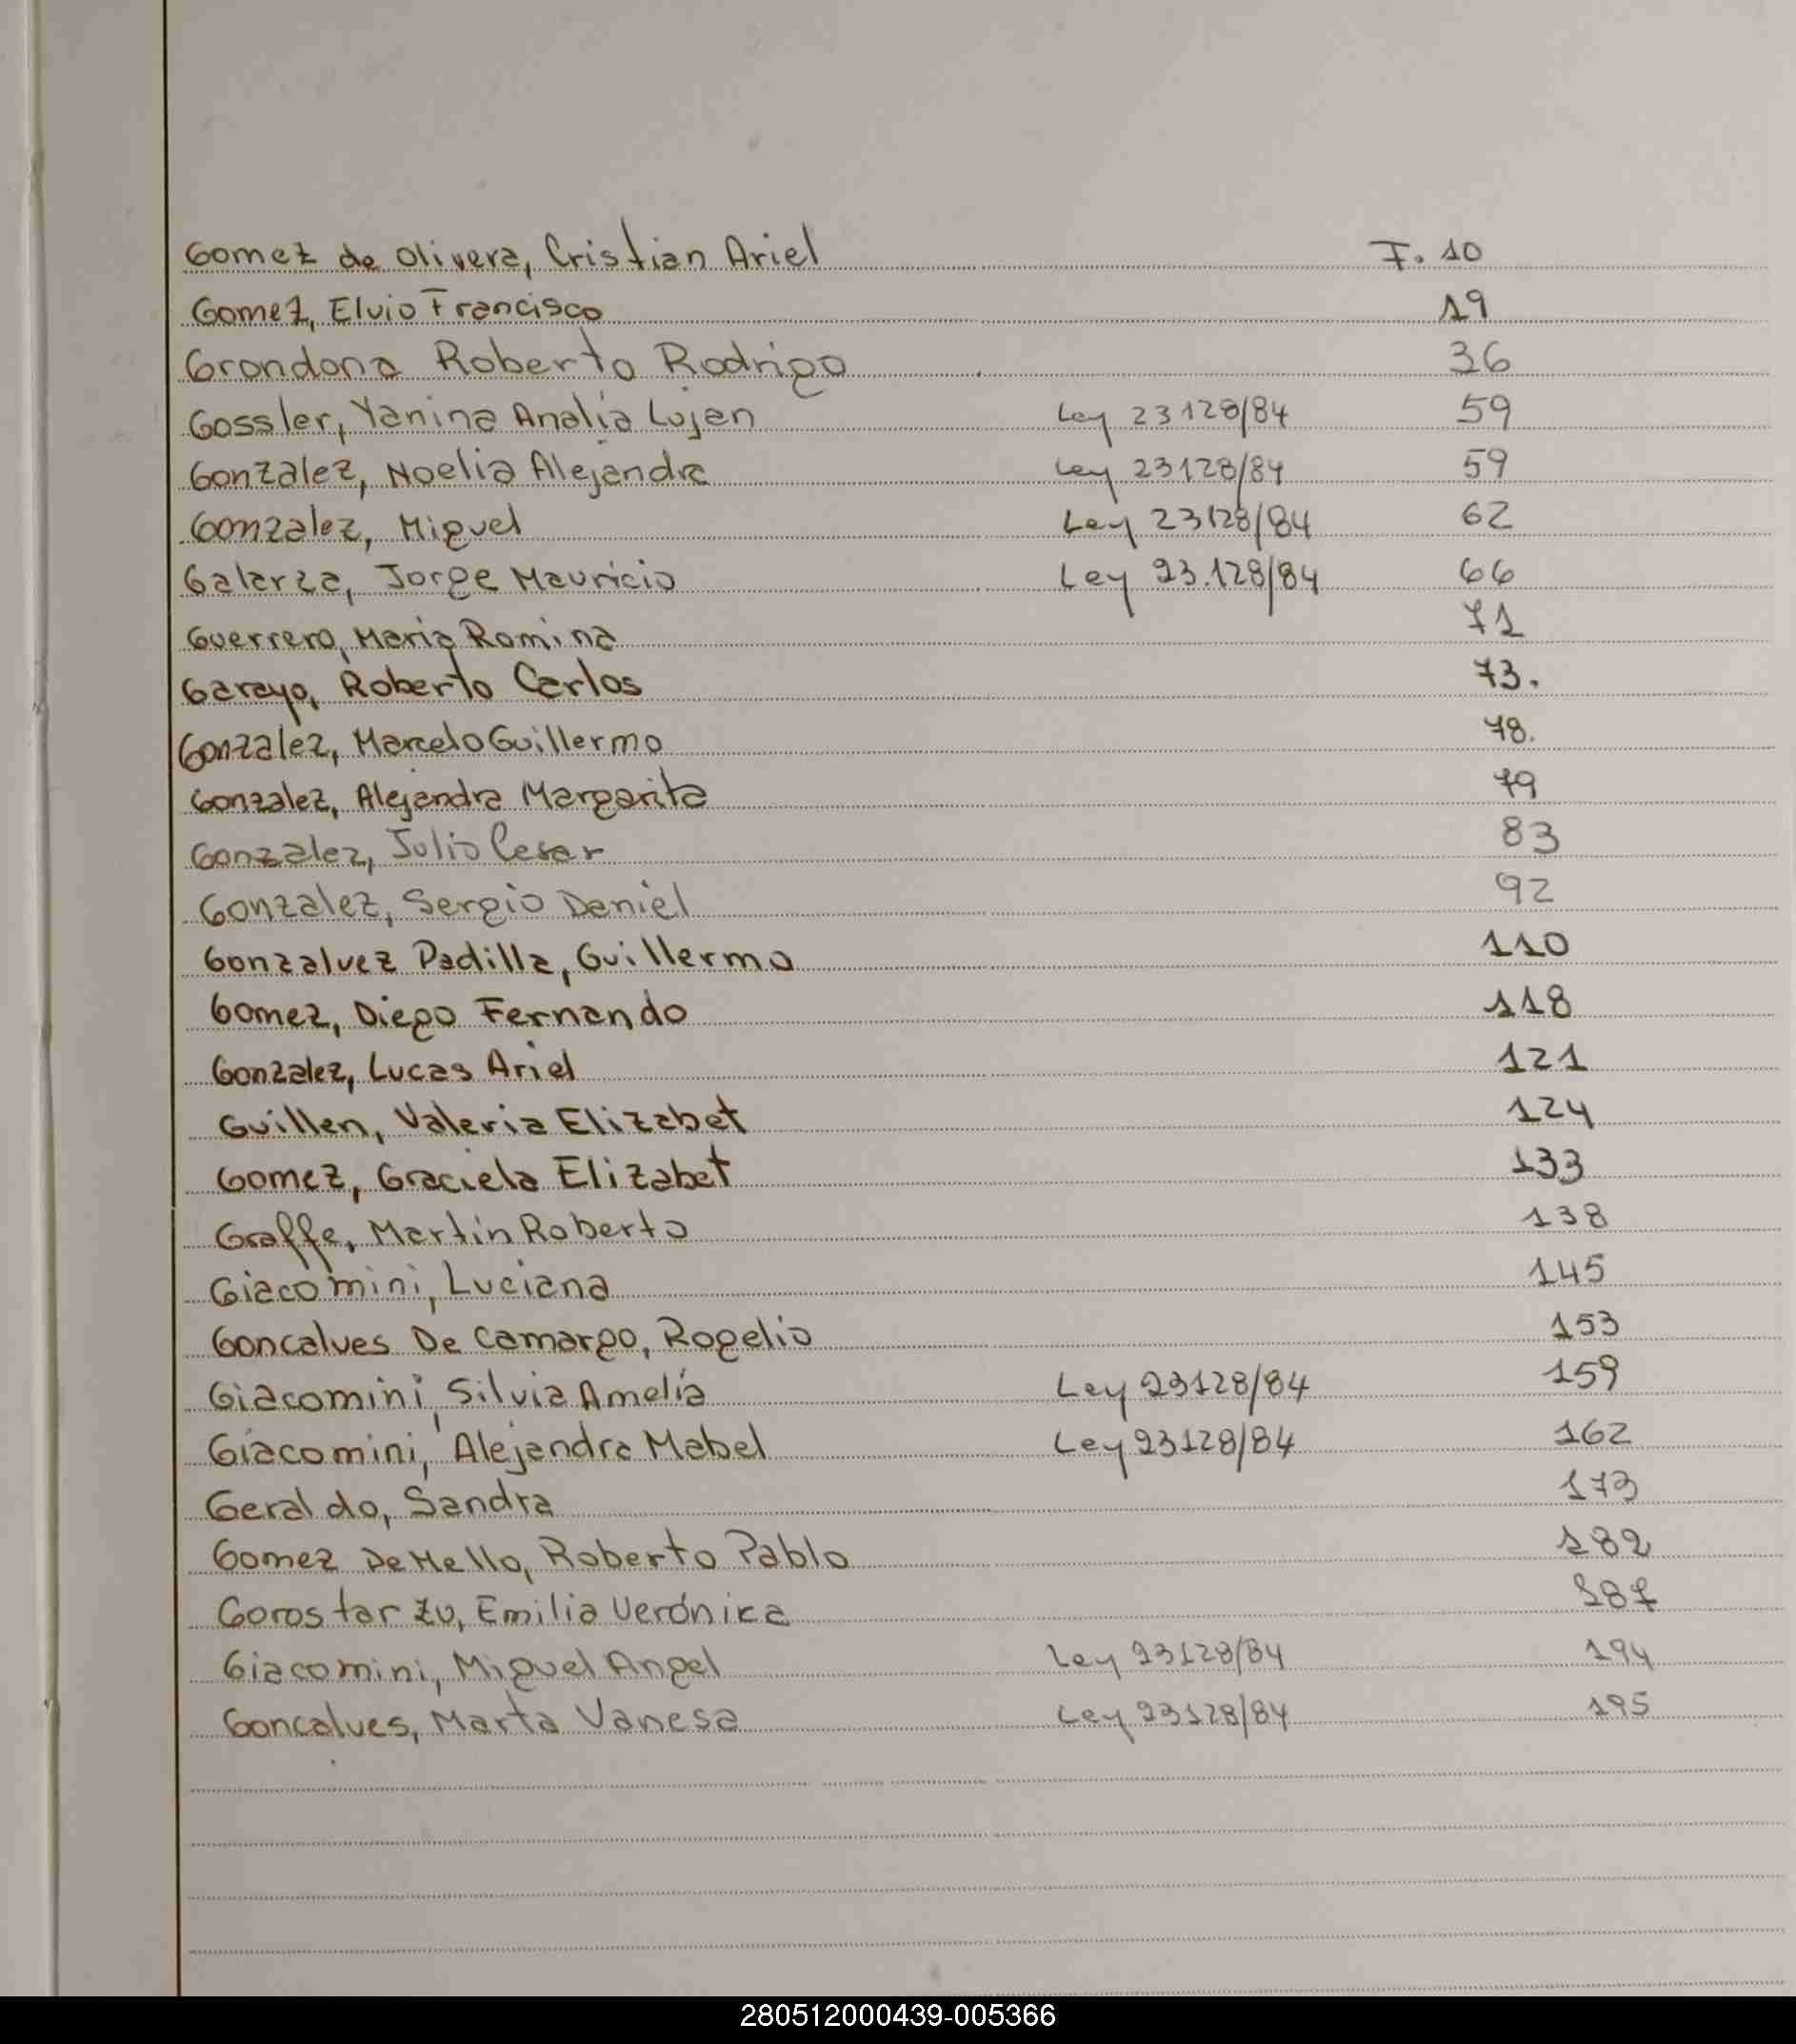 Gomez de Olivera, Cristian Ariel F. 10
Gomez, Elvio Francisco 19
Grondona Roberto Rodrigo 36
Gossler, Yanina Analía Lujan Ley 23128/84 59
Gonzalez, Noelia Alejandra Ley 23128/84 59
Gonzalez, Miguel Ley 23128/84 62
Galarza, Jorge Mauricio Ley 23.128/84 66
Guerrero, Maria Romina 71
Garayo, Roberto Carlos 73.
Gonzalez, Marcelo Guillermo 78.
Gonzalez, Alejandra Margarita 79
Gonzalez, Julio Cesar 83
Gonzalez, Sergio Daniel 92
Gonzalvez Padilla, Guillermo 110
Gomez, Diego Fernando 118
Gonzalez, Lucas Ariel 121
Guillen, Valeria Elizabet 124
Gomez, Graciela Elizabet 133
Graffe, Martin Roberto 138
Giacomini, Luciana 145
Goncalves De Camargo, Rogelio 153
Giacomini, Silvia Amelía Ley 23128/84 159
Giacomini, Alejandra Mabel Ley 23128/84 162
Geraldo, Sandra 173
Gomez De Mello, Roberto Pablo 182
Gorostarzu, Emilia Verónica 187
Giacomini, Miguel Angel Ley 23128/84 194
Goncalves, Marta Vanesa Ley 23128/84 195
280512000439-005366